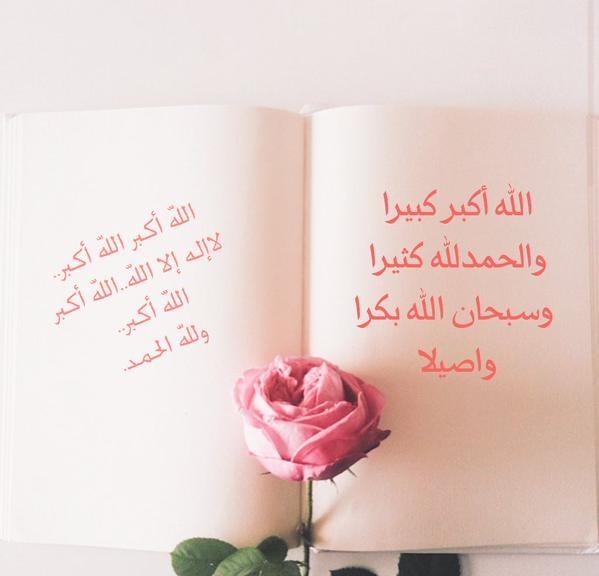 الله أكبر كبيرا
والحمدلله كثيرا
وسبحان الله بكرا
واصيلا
الله أكبر الله أكبر..
لاإله إلا الله..الله أكبر
الله أكبر..
ولله الحمد.